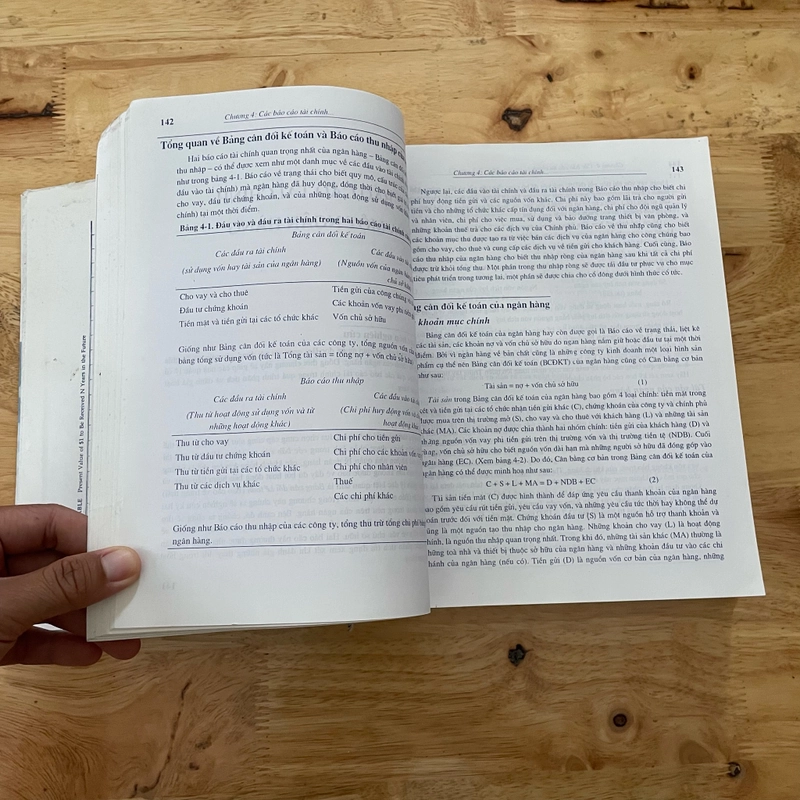 142
Chương 4: Các báo cáo tài chính...
Tổng quan về Bảng cân đối kế toán và Báo cáo thu nhập
Hai báo cáo tài chính quan trọng nhất của ngân hàng – Bảng cân đối
thu nhập – có thể được xem như một danh mục về các đầu vào tài chính
như trong bảng 4-1. Báo cáo về trạng thái cho biết quy mô, cấu trúc
đầu vào tài chính) mà ngân hàng đã huy động, đồng thời cho biết
cho vay, đầu tư chứng khoán, và của những hoạt động sử dụng vốn
chính) tại một thời điểm.
Bảng 4-1. Đầu vào và đầu ra tài chính trong hai báo cáo tài chính
Bảng cân đối kế toán
Các đầu ra tài chính
Các đầu vào
(sử dụng vốn hay tài sản của ngân hàng)
(Nguồn vốn của ngân hàng
chủ sở
Cho vay và cho thuê
Tiền gửi của công chúng
Đầu tư chứng khoán
Các khoản vốn vay phi tiền
Tiền mặt và tiền gửi tại các tổ chức khác
Vốn chủ sở hữu
Giống như Bảng cân đối kế toán của các công ty, tổng nguồn vốn
bằng tổng sử dụng vốn (tức là Tổng tài sản = tổng nợ + vốn chủ sở
Báo cáo thu nhập
Các đầu ra tài chính
Các đầu vào
(Thu từ hoạt động sử dụng vốn và từ
(Chi phí huy động vốn
những hoạt động khác)
hoạt động
Thu từ cho vay
Chi phí cho tiền gửi
Thu từ đầu tư chứng khoán
Chi phí cho các khoản
Thu từ tiền gửi tại các tổ chức khác
Chi phí cho nhân viên
Thu từ các dịch vụ khác
Thuế
Các chi phí khác
Giống như Báo cáo thu nhập của các công ty, tổng thu trừ tổng chi phí
ngân hàng.
TABLE Present Value of $1 to Be Received N Years in the Future
Chương 4: Các báo cáo tài chính...
143
Ngược lại, các đầu vào tài chính và đầu ra tài chính trong Báo cáo thu nhập cho biết chi
phí huy động tiền gửi và các nguồn vốn khác. Chi phí này bao gồm lãi trả cho người gửi
tiền và cho những tổ chức khác cấp tín dụng đối với ngân hàng, chi phí cho đội ngũ quản lý
và nhân viên, chi phí cho việc mua, sử dụng và bảo dưỡng trang thiết bị văn phòng, và
những khoản thuế trả cho các dịch vụ của Chính phủ. Báo cáo về thu nhập cũng cho biết
các khoản mục thu được tạo ra từ việc bán các dịch vụ của ngân hàng cho công chúng bao
gồm cho vay, cho thuê và cung cấp các dịch vụ về tiền gửi cho khách hàng. Cuối cùng, Báo
cáo thu nhập của ngân hàng cho biết thu nhập ròng của ngân hàng sau khi tất cả chi phí
được trừ khỏi tổng thu. Một phần trong thu nhập ròng sẽ được tái đầu tư phục vụ cho mục
tiêu phát triển trong tương lai, một phần sẽ được chia cho cổ đông dưới hình thức cổ tức.
cân đối kế toán của ngân hàng
khoản mục chính
Bảng cân đối kế toán của ngân hàng hay còn được gọi là Báo cáo về trạng thái, liệt kê
các tài sản, các khoản nợ và vốn chủ sở hữu do ngân hàng nắm giữ hoặc đầu tư tại một thời
điểm. Bởi vì ngân hàng về bản chất cũng là những công ty kinh doanh một loại hình sản
phẩm cụ thể nên Bảng cân đối kế toán (BCĐKT) của ngân hàng cũng có Cân bằng cơ bản
như sau:
Tài sản = nợ + vốn chủ sở hữu (1)
Tài sản trong Bảng cân đối kế toán của ngân hàng bao gồm 4 loại chính: tiền mặt trong
két và tiền gửi tại các tổ chức nhận tiền gửi khác (C), chứng khoán của công ty và chính phủ
được mua trên thị trường mở (S), cho vay và cho thuê với khách hàng (L) và những tài sản
khác (MA). Các khoản nợ được chia thành hai nhóm chính: tiền gửi của khách hàng (D) và
những nguồn vốn vay phi tiền gửi trên thị trường vốn và thị trường tiền tệ (NDB). Cuối
cùng, vốn chủ sở hữu cho biết nguồn vốn dài hạn mà những người chủ sở hữu đã đóng góp vào
ngân hàng (EC). (Xem bảng 4-2). Do đó, Cân bằng cơ bản trong Bảng cân đối kế toán của
ngân hàng có thể được minh hoạ như sau:
C + S + L + MA = D + NDB + EC (2)
Tài sản tiền mặt (C) được hình thành để đáp ứng yêu cầu thanh khoản của ngân hàng
bao gồm yêu cầu rút tiền gửi, yêu cầu vay vốn, và những yêu cầu tức thời hay không dự
đoán trước đối với tiền mặt. Chứng khoán đầu tư (S) là một nguồn hỗ trợ thanh khoản và
cũng là một nguồn tạo thu nhập cho ngân hàng. Những khoản cho vay (L) là hoạt động
chính, là nguồn thu nhập quan trọng nhất. Trong khi đó, những tài sản khác (MA) thường là
những toà nhà và thiết bị thuộc sở hữu của ngân hàng và những khoản đầu tư vào các chi
nhánh của ngân hàng (nếu có). Tiền gửi (D) là nguồn vốn cơ bản của ngân hàng, những